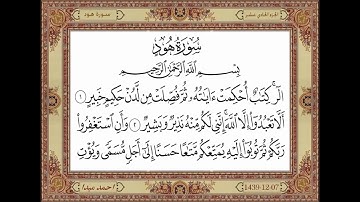 سورة هود
الجزء الحادي عشر
سُورَةُ هُودٍ
بِسْمِ اللَّهِ الرَّحْمَٰنِ الرَّحِيمِ
الٓر ۚ كِتَٰبٌ أُحْكِمَتْ ءَايَٰتُهُۥ ثُمَّ فُصِّلَتْ مِن لَّدُنْ حَكِيمٍ خَبِيرٍ ١
أَلَّا تَعْبُدُوٓا۟ إِلَّا ٱللَّهَ ۚ إِنَّنِى لَكُم مِّنْهُ نَذِيرٌ وَبَشِيرٌ ٢ وَأَنِ ٱسْتَغْفِرُوا۟
رَبَّكُمْ ثُمَّ تُوبُوٓا۟ إِلَيْهِ يُمَتِّعْكُم مَّتَٰعًا حَسَنًا إِلَىٰٓ أَجَلٍ مُّسَمًّى وَيُؤْتِ
احمد
1439-12-07